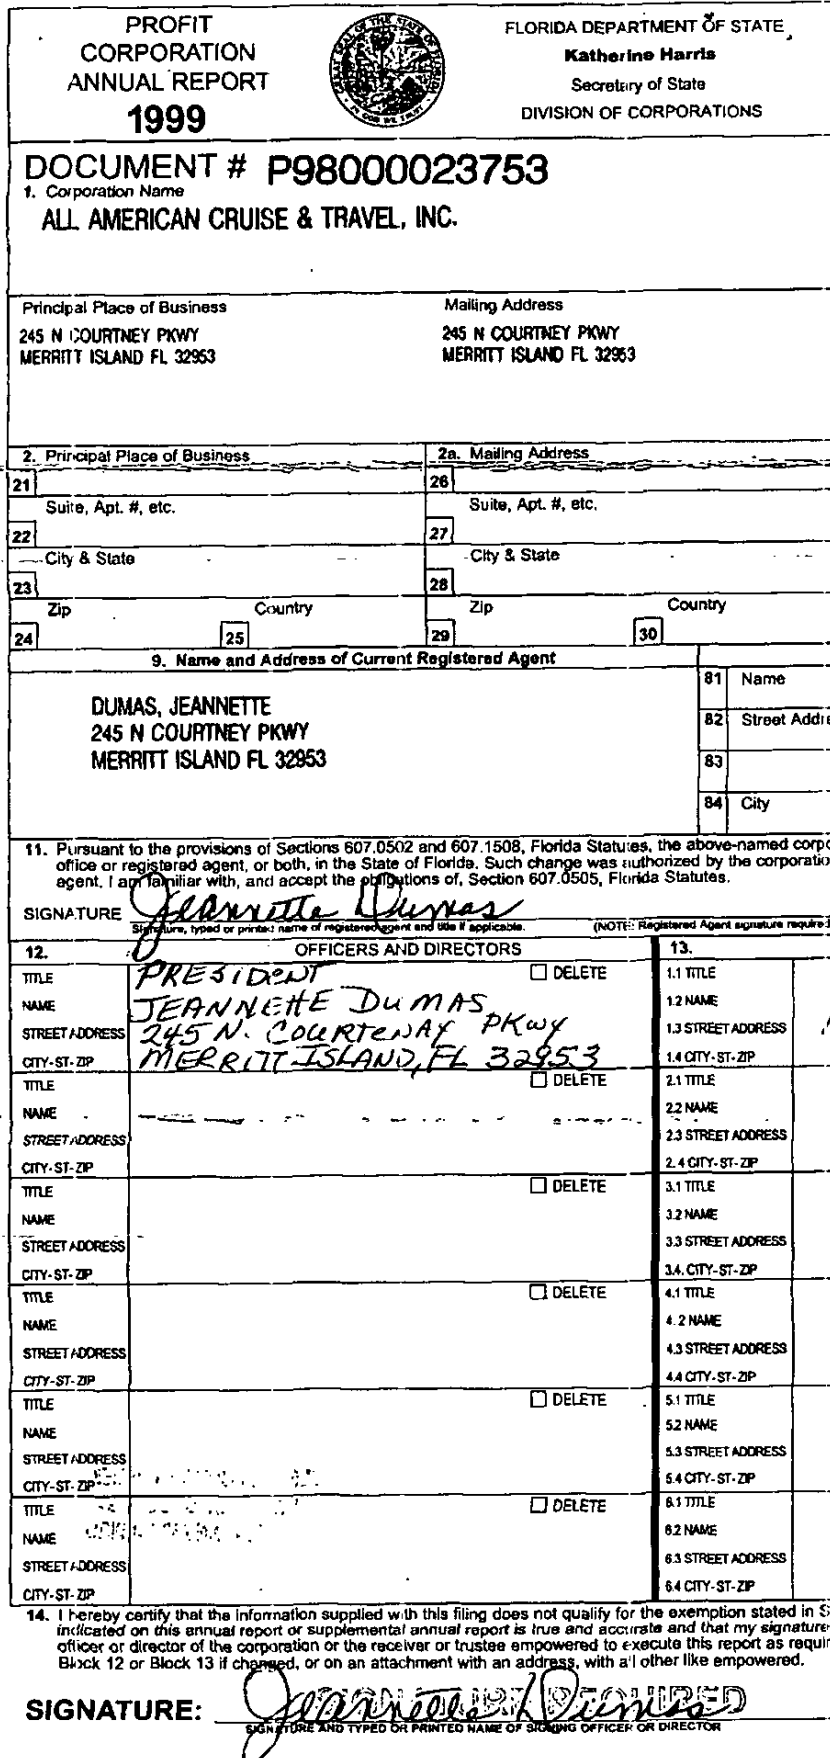 PROFIT
CORPORATION
ANNUAL REPORT
1999
FLORIDA DEPARTMENT OF STATE
Katherine Harris
Secretary of State
DIVISION OF CORPORATIONS
DOCUMENT # P98000023753
1. Corporation Name
ALL AMERICAN CRUISE & TRAVEL, INC.
Principal Place of Business
Mailing Address
245 N COURTNEY PKWY
MERRITT ISLAND FL 32953
245 N COURTNEY PKWY
MERRITT ISLAND FL 32953
2. Principal Place of Business
2a. Mailing Address
21
26
Suite, Apt. #, etc.
Suite, Apt. #, etc.
22
27
City & State
City & State
23
28
Zip
Country
Zip
Country
24
25
29
30
9. Name and Address of Current Registered Agent
DUMAS, JEANNETTE
245 N COURTNEY PKWY
MERRITT ISLAND FL 32953
81 Name
82 Street Addre
83
84 City
11. Pursuant to the provisions of Sections 607.0502 and 607.1508, Florida Statutes, the above-named corpo
office or registered agent, or both, in the State of Florida. Such change was authorized by the corporatio
agent. I am familiar with, and accept the obligations of, Section 607.0505, Florida Statutes.
SIGNATURE Jeannette Dumas
Signature, typed or printed name of registered agent and title if applicable.
(NOTE: Registered Agent signature required
12. OFFICERS AND DIRECTORS
13.
TITLE PRESIDENT DELETE
NAME JEANNETTE DUMAS
STREET ADDRESS 245 N. COURTENAY PKWY
CITY-ST-ZIP MERRITT ISLAND, FL 32953
1.1 TITLE
1.2 NAME
1.3 STREET ADDRESS
1.4 CITY-ST-ZIP
TITLE DELETE
NAME
STREET ADDRESS
CITY-ST-ZIP
2.1 TITLE
2.2 NAME
2.3 STREET ADDRESS
2.4 CITY-ST-ZIP
TITLE DELETE
NAME
STREET ADDRESS
CITY-ST-ZIP
3.1 TITLE
3.2 NAME
3.3 STREET ADDRESS
3.4. CITY-ST-ZIP
TITLE DELETE
NAME
STREET ADDRESS
CITY-ST-ZIP
4.1 TITLE
4.2 NAME
4.3 STREET ADDRESS
4.4 CITY-ST-ZIP
TITLE DELETE
NAME
STREET ADDRESS
CITY-ST-ZIP
5.1 TITLE
5.2 NAME
5.3 STREET ADDRESS
5.4 CITY-ST-ZIP
TITLE DELETE
NAME
STREET ADDRESS
CITY-ST-ZIP
6.1 TITLE
6.2 NAME
6.3 STREET ADDRESS
6.4 CITY-ST-ZIP
14. I hereby certify that the information supplied with this filing does not qualify for the exemption stated in S
indicated on this annual report or supplemental annual report is true and accurate and that my signature
officer or director of the corporation or the receiver or trustee empowered to execute this report as requir
Block 12 or Block 13 if changed, or on an attachment with an address, with all other like empowered.
SIGNATURE: Jeannette Dumas
SIGNATURE AND TYPED OR PRINTED NAME OF SIGNING OFFICER OR DIRECTOR